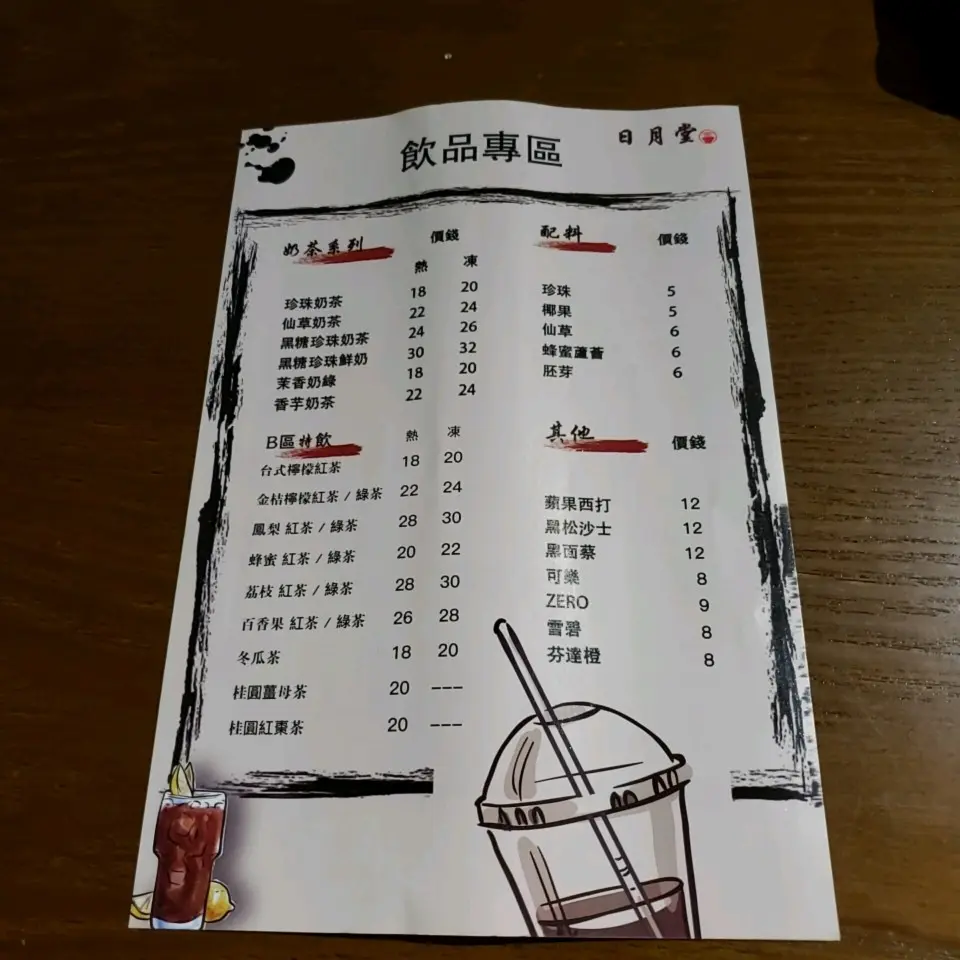 飲品專區
日月堂
奶茶系列 價錢
熱 凍
珍珠奶茶 18 20
仙草奶茶 22 24
黑糖珍珠奶茶 24 26
黑糖珍珠鮮奶 30 32
茉香奶綠 18 20
香芋奶茶 22 24
B區特飲 熱 凍
台式檸檬紅茶 18 20
金桔檸檬紅茶 / 綠茶 22 24
鳳梨 紅茶 / 綠茶 28 30
蜂蜜 紅茶 / 綠茶 20 22
荔枝 紅茶 / 綠茶 28 30
百香果 紅茶 / 綠茶 26 28
冬瓜茶 18 20
桂圓薑母茶 20 ---
桂圓紅棗茶 20 ---
配料 價錢
珍珠 5
椰果 5
仙草 6
蜂蜜蘆薈 6
胚芽 6
其他 價錢
蘋果西打 12
黑松沙士 12
黑面蔡 12
可樂 8
ZERO 9
雪碧 8
芬達橙 8